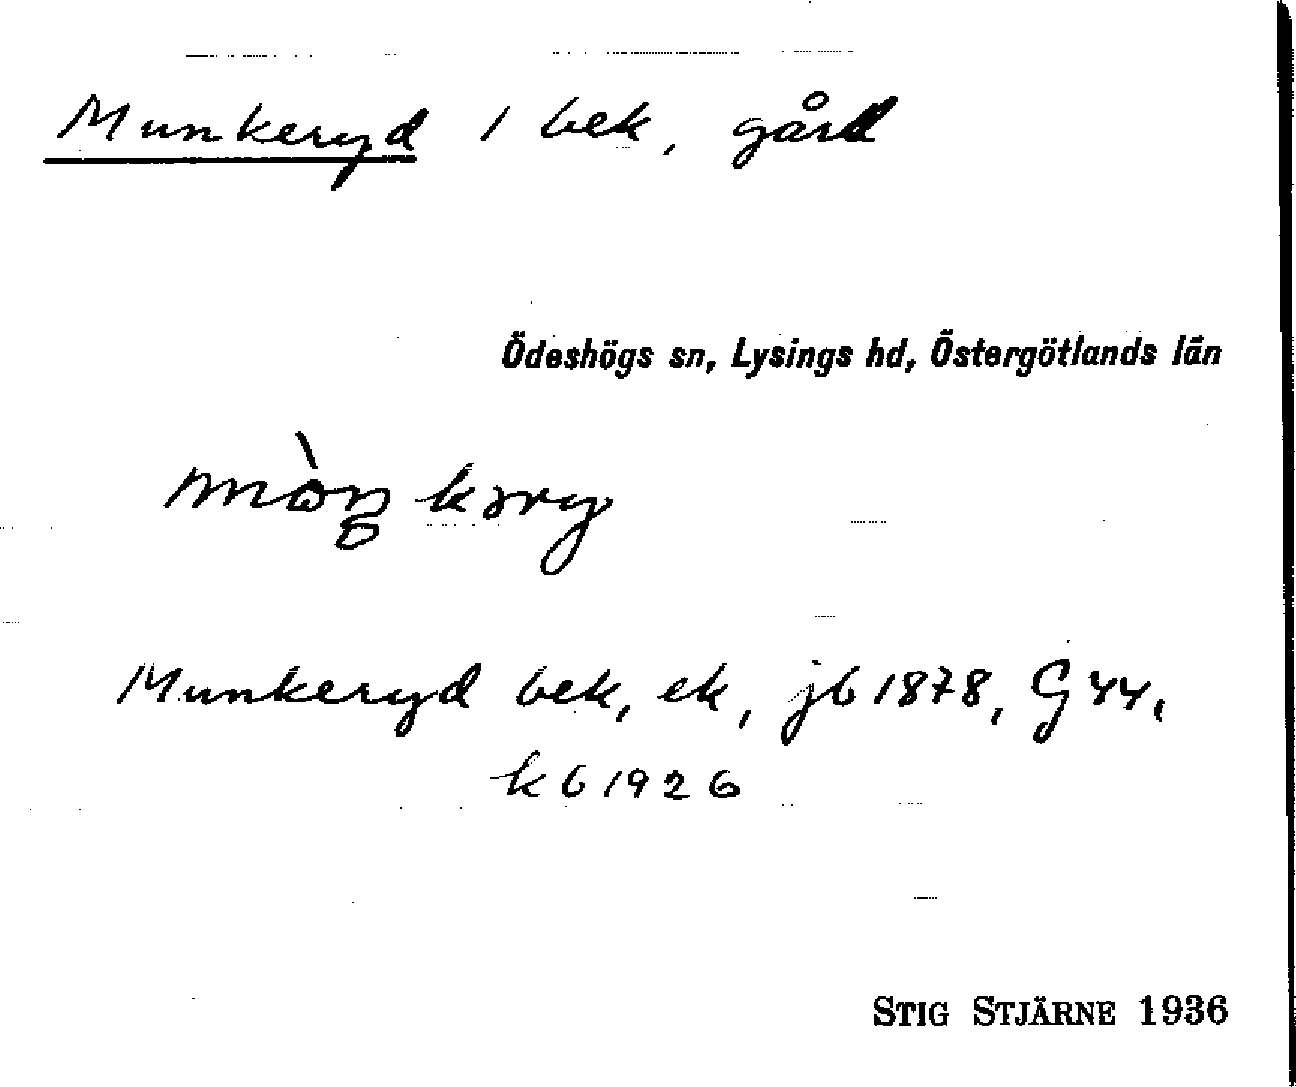 Munkeryd 1 bek, gård
Ödeshögs sn, Lysings hd, Östergötlands län
mòŋkəry
Munkeryd bek, ek, jb 1878, G 44,
kb 1926
STIG STJÄRNE 1936